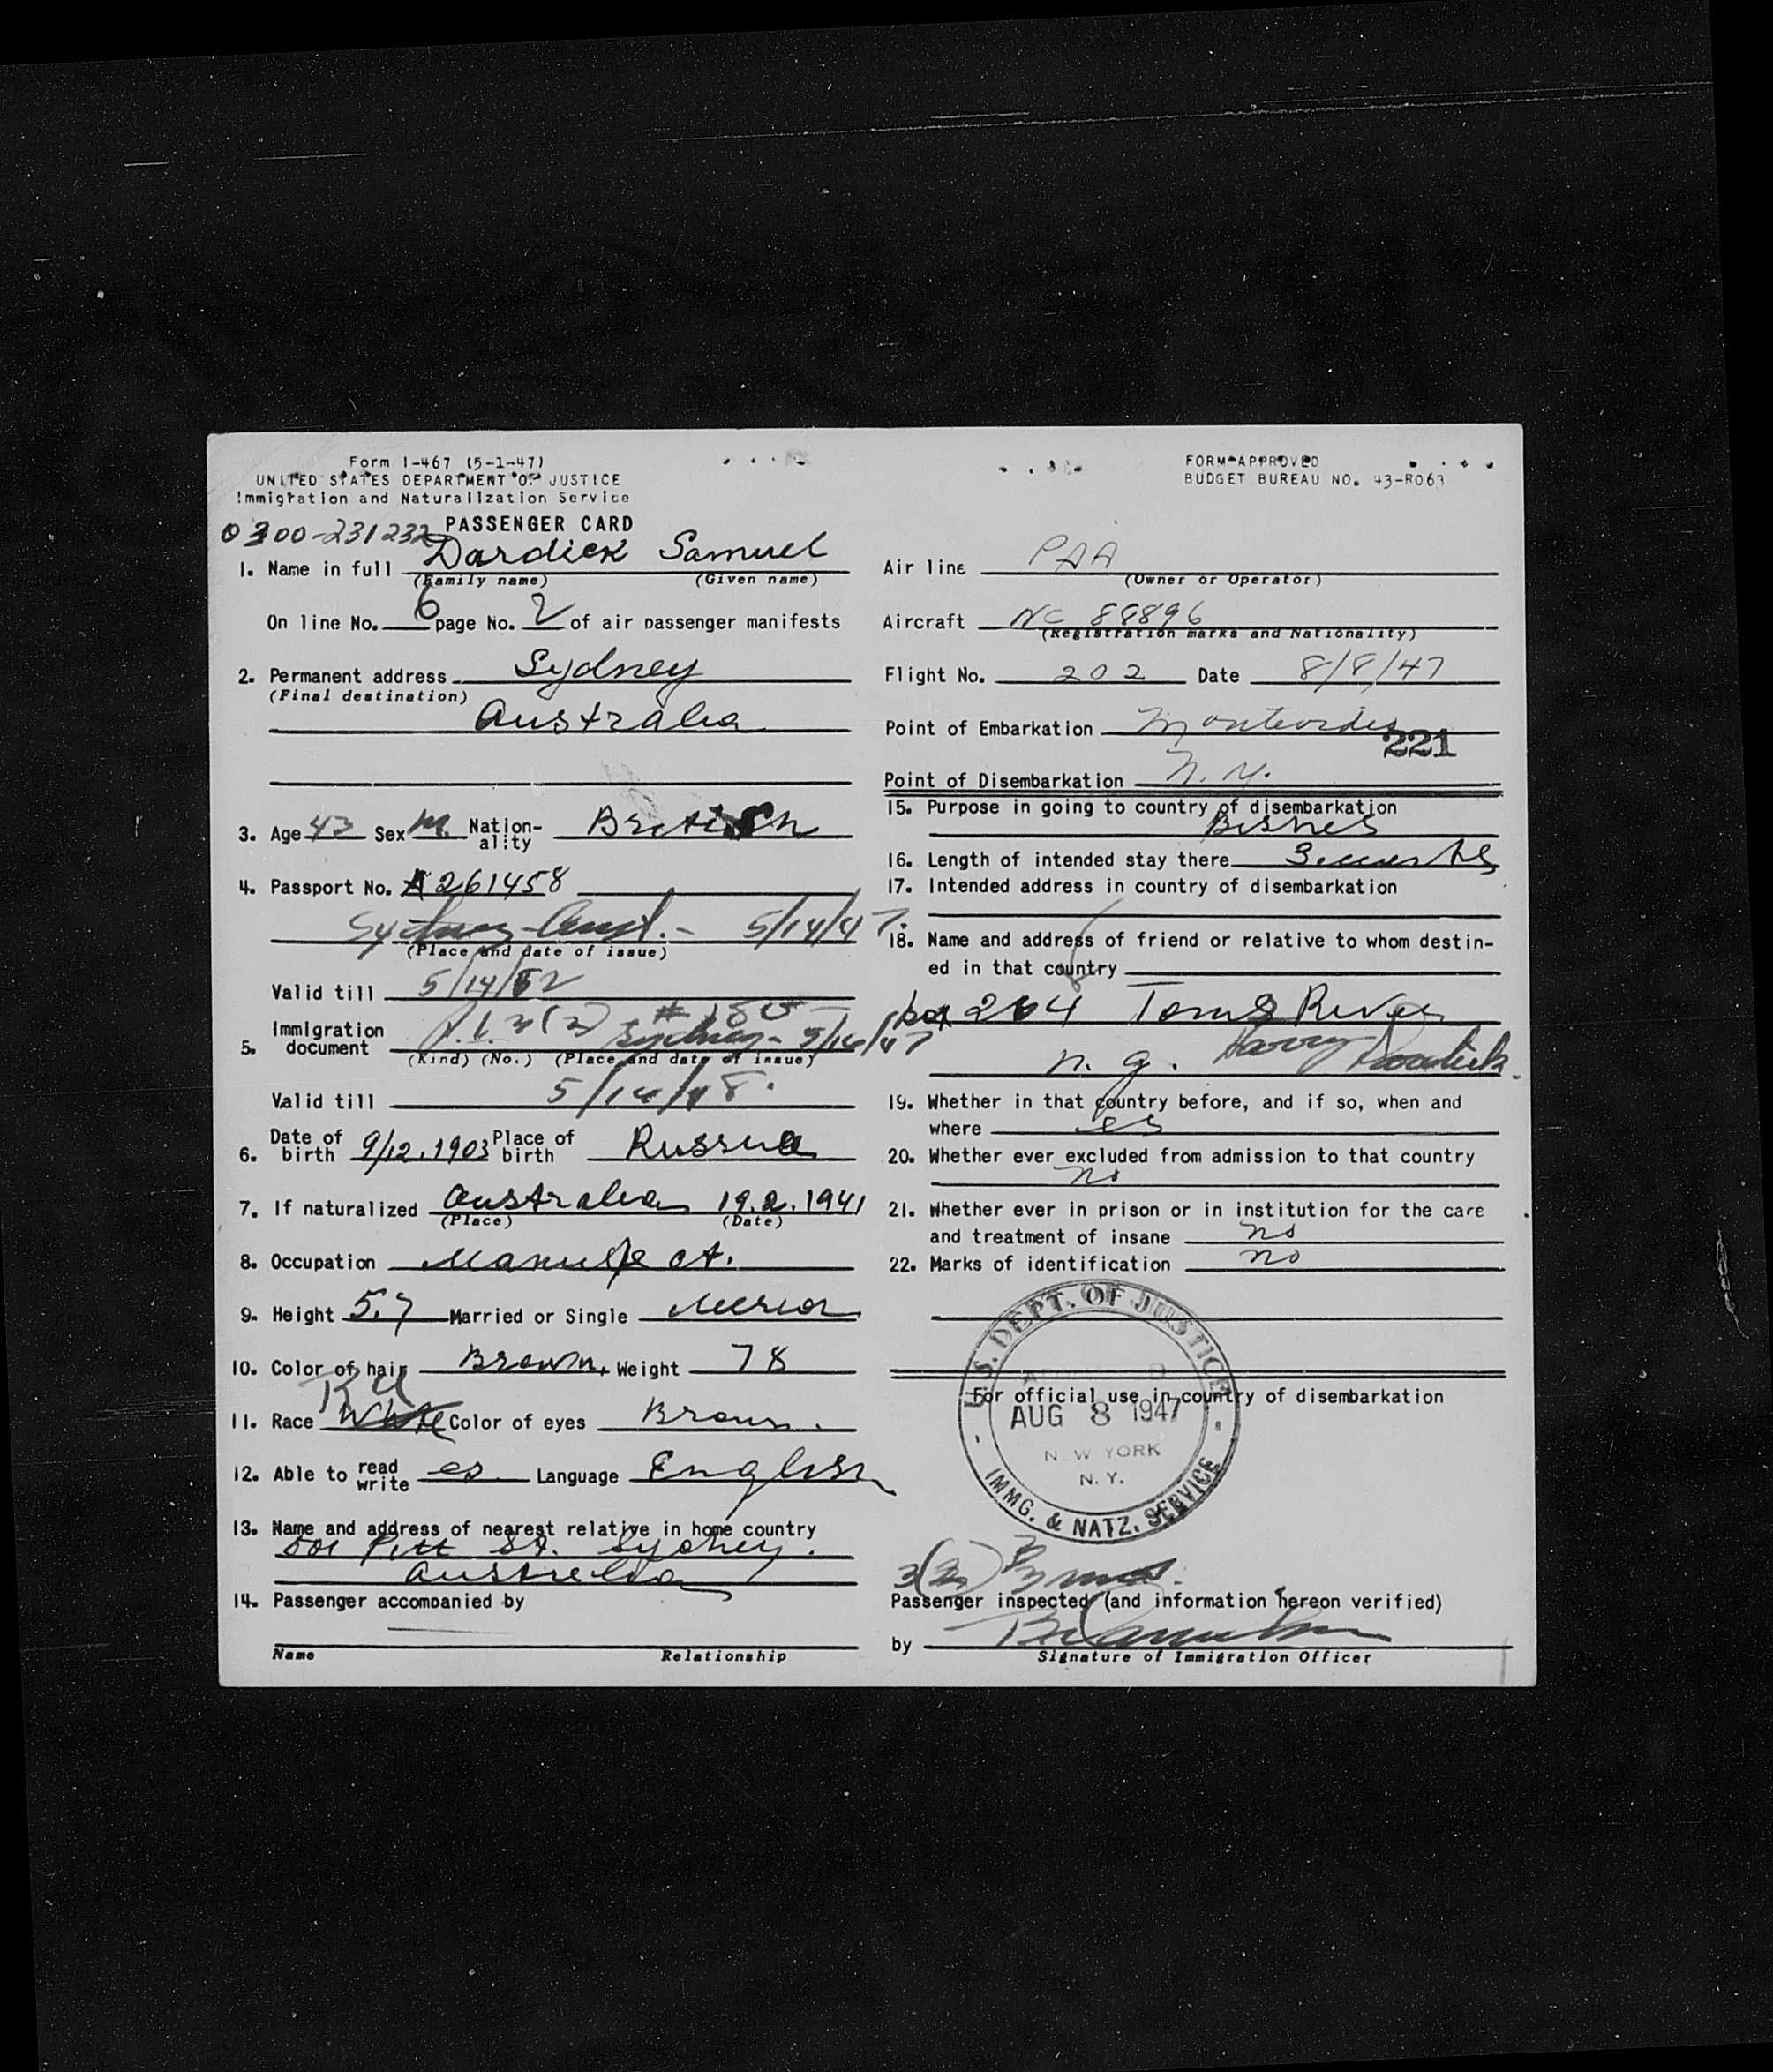 Form I-467 (5-1-47)
UNITED STATES DEPARTMENT OF JUSTICE
Immigration and Naturalization Service
PASSENGER CARD
0300-231232
FORM APPROVED
BUDGET BUREAU NO. 43-R063
1. Name in full Dardick Samuel
(Family name) (Given name)
On line No. 6 page No. 2 of air passenger manifests
2. Permanent address Sydney
(Final destination)
Australia
3. Age 43 Sex M. Nation-ality British
4. Passport No. A261458
Sydney Aust. - 5/14/47.
(Place and date of issue)
Valid till 5/14/52
5. Immigration document 3(2) # Sydney - 5/14/47
(Kind) (No.) (Place and date of issue)
Valid till 5/14/48.
6. Date of birth 9/12.1903 Place of birth Russia
7. If naturalized Australia 19.2.1941
(Place) (Date)
8. Occupation Manufact.
9. Height 5.7 Married or Single
10. Color of hair Brown, Weight 78
11. Race White Color of eyes Brown.
12. Able to read write es Language English
13. Name and address of nearest relative in home country
501 Pitt St. Sydney.
Australia
14. Passenger accompanied by
Name Relationship
Air line PAA
(Owner or Operator)
Aircraft NC 88896
(Registration marks and Nationality)
Flight No. 202 Date 8/8/47
Point of Embarkation Montevideo
221
Point of Disembarkation N.Y.
15. Purpose in going to country of disembarkation
Bisnes
16. Length of intended stay there 3.
17. Intended address in country of disembarkation
18. Name and address of friend or relative to whom destin-
ed in that country
box 264 Toms River
n. g. Harry Dardick.
19. Whether in that country before, and if so, when and
where es
20. Whether ever excluded from admission to that country
no
21. Whether ever in prison or in institution for the care
and treatment of insane no
22. Marks of identification no
For official use in country of disembarkation
U.S. DEPT. OF JUSTICE
AUG 8 1947
NEW YORK
N. Y.
IMMG. & NATZ. SERVICE
3(2) 3 mos.
Passenger inspected (and information hereon verified)
by
Signature of Immigration Officer